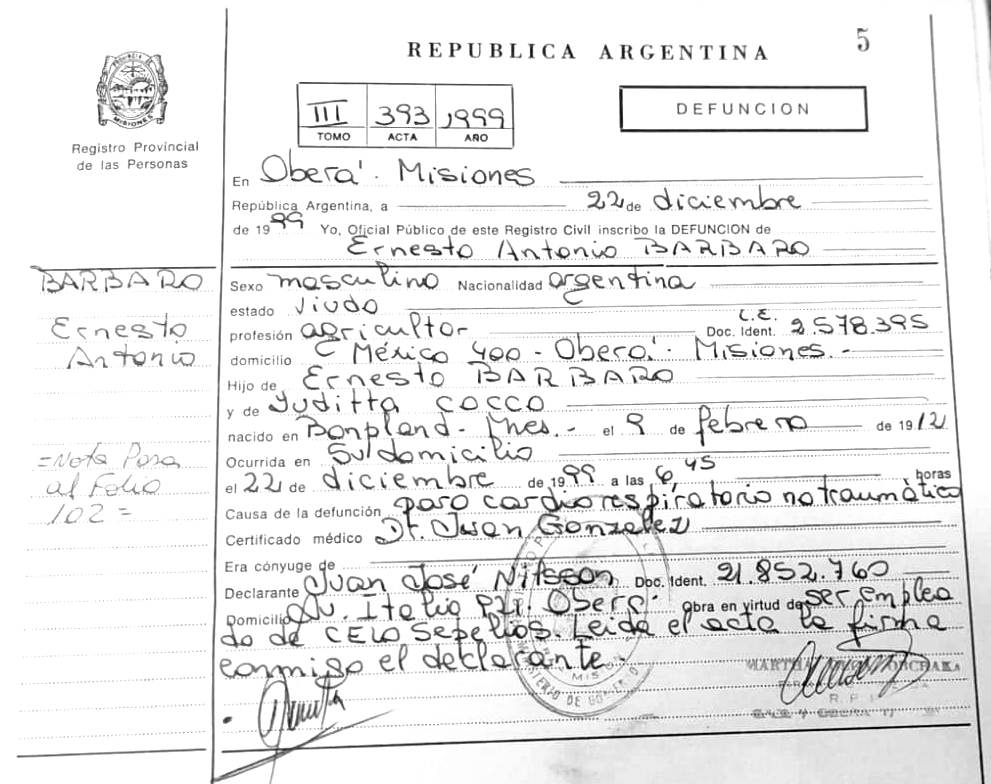 REPUBLICA ARGENTINA
5
PROVINCIA DE MISIONES
Registro Provincial
de las Personas
III 393 1999
TOMO ACTA AÑO
DEFUNCION
En Oberá. Misiones
República Argentina, a 22 de diciembre
de 1999 Yo, Oficial Público de este Registro Civil inscribo la DEFUNCION de
Ernesto Antonio BARBARO
BARBARO
Ernesto
Antonio
Sexo masculino Nacionalidad argentina
estado viudo
profesión agricultor Doc. Ident. L.E. 2.578.395
domicilio C México 400 - Oberá. Misiones.-
Hijo de Ernesto BARBARO
y de Yuditta COCCO
nacido en Bonpland - Mnes.- el 9 de febrero de 1912
=Nota Pasa
al Folio
102=
Ocurrida en Su domicilio
el 22 de diciembre de 1999 a las 6 45 horas
Causa de la defunción paro cardiorespiratorio no traumático
Certificado médico Dr. Juan Gonzalez
Era cónyuge de
Declarante Juan José Nilsson Doc. Ident. 21.852.760
Domicilio Av. Italia Oberá. Obra en virtud de ser emplea
do de CELO Sepelios. Leida el acta la firma
conmigo el declarante.
MINISTERIO DE GOBIERNO
MARTHA